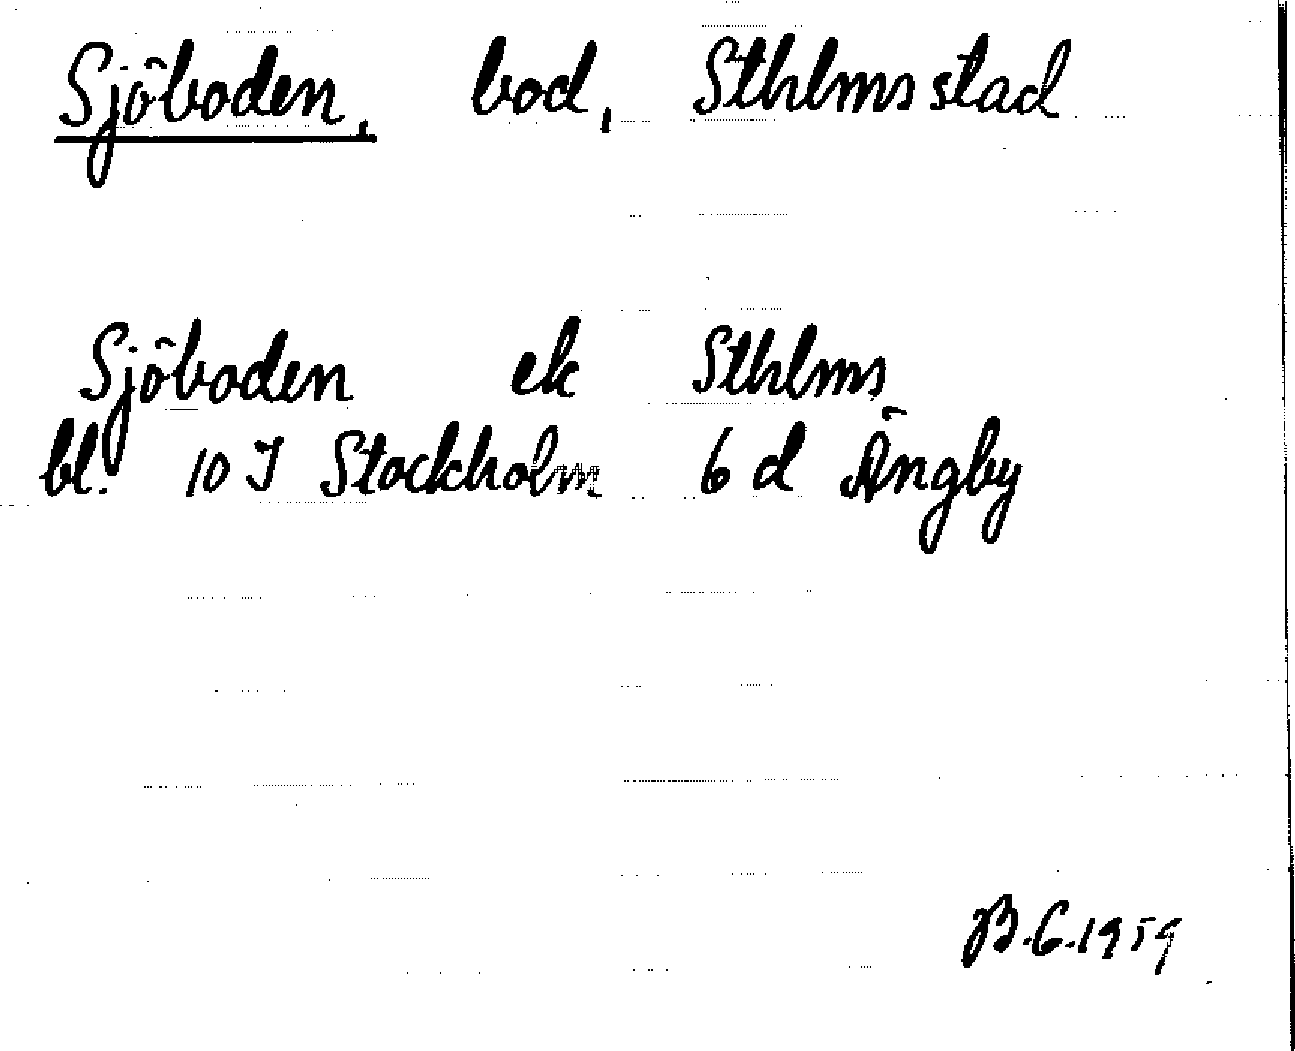 Sjöboden, bod, Sthlms stad
Sjöboden ek Sthlms
bl. 10 I Stockholm 6 d Ängby
B.G.1959